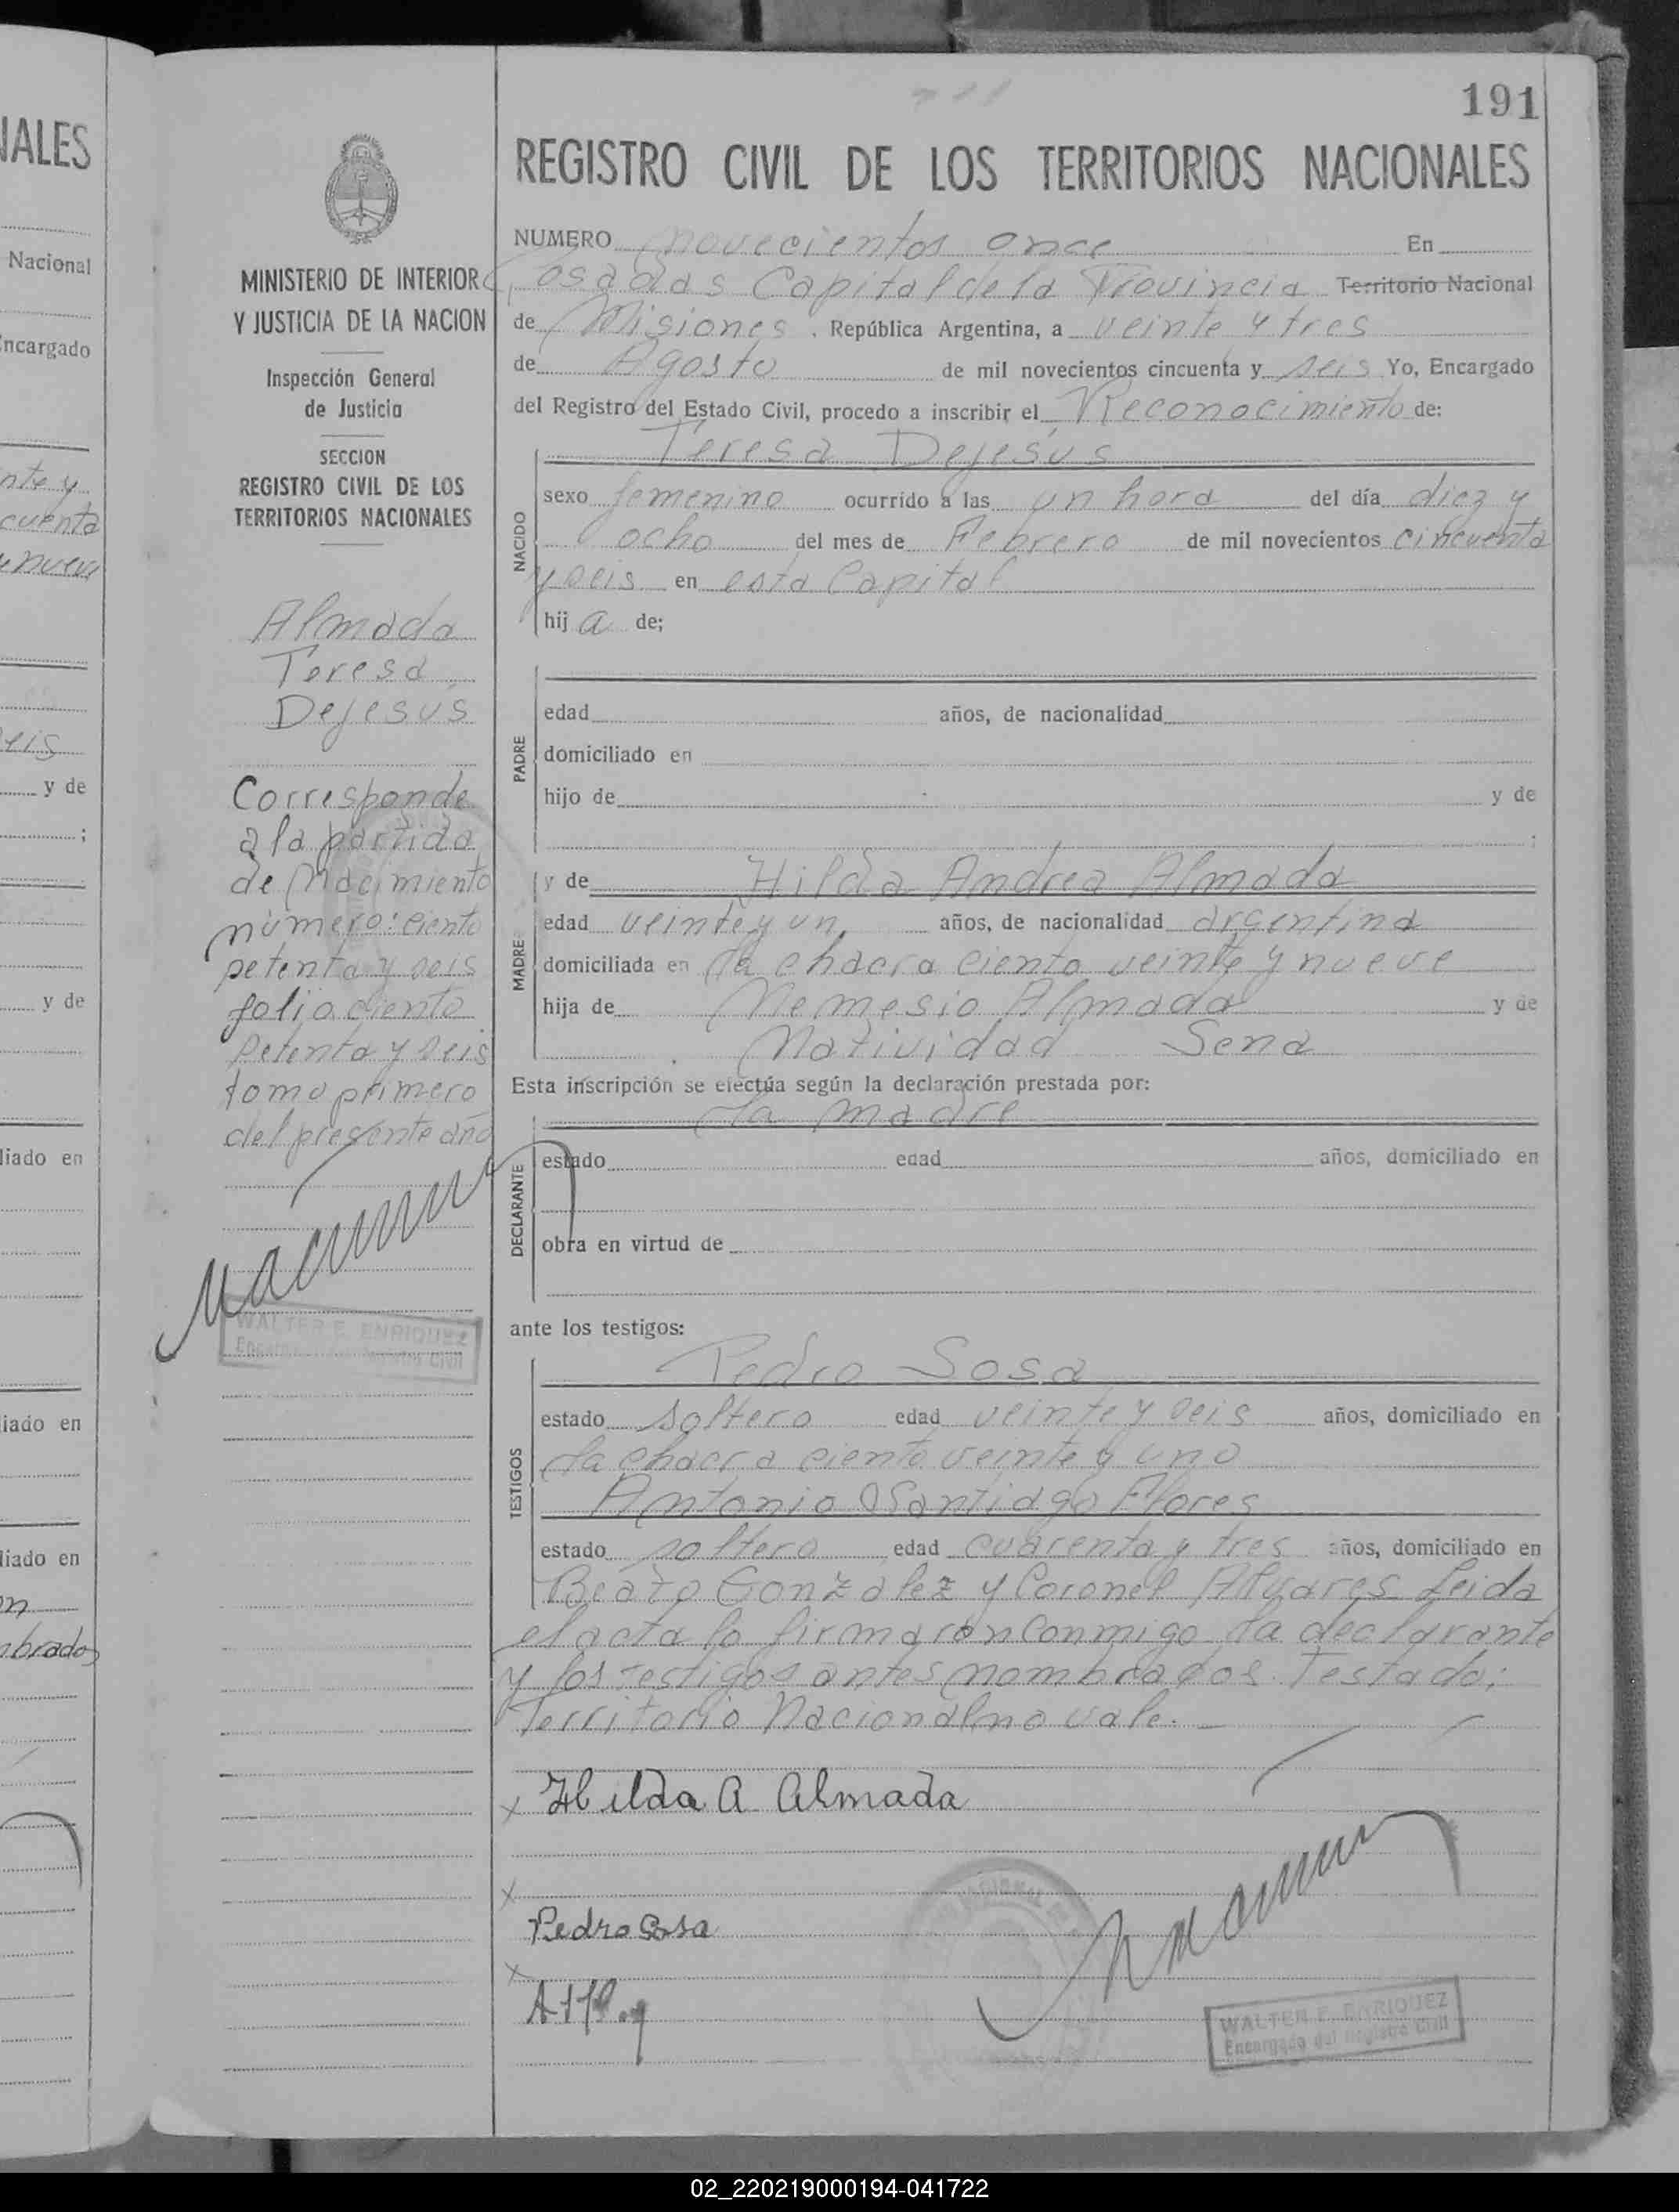 191
REGISTRO CIVIL DE LOS TERRITORIOS NACIONALES
MINISTERIO DE INTERIOR
Y JUSTICIA DE LA NACION
Inspección General
de Justicia
SECCION
REGISTRO CIVIL DE LOS
TERRITORIOS NACIONALES
Almada
Teresa
Dejesús
Corresponde
a la partida
de Nacimiento
número: ciento
setenta y seis
folio ciento
setenta y seis
tomo primero
del presente año
WALTER F. ENRIQUEZ
Encargado del Registro Civil
NUMERO novecientos once En
Posadas Capital de la Provincia Territorio Nacional
de Misiones. República Argentina, a veinte y tres
de Agosto de mil novecientos cincuenta y seis Yo, Encargado
del Registro del Estado Civil, procedo a inscribir el Reconocimiento de:
Teresa Dejesús
NACIDO
sexo femenino ocurrido a las un hora del día diez y
ocho del mes de Febrero de mil novecientos cincuenta
y seis en esta Capital
hij a de;
PADRE
edad años, de nacionalidad
domiciliado en
hijo de y de
;
MADRE
y de Hilda Andrea Almada
edad veinte y un años, de nacionalidad argentina
domiciliada en la chacra ciento veinte y nueve
hija de Nemesio Almada y de
Natividad Sena
Esta inscripción se efectúa según la declaración prestada por:
la madre
DECLARANTE
estado edad años, domiciliado en
obra en virtud de
ante los testigos:
TESTIGOS
Pedro Sosa
estado soltero edad veinte y seis años, domiciliado en
la chacra ciento veinte y uno
Antonio Santiago Flores
estado soltero edad cuarenta y tres años, domiciliado en
Beato Gonzalez y Coronel Alvares Leida
el acta la firmaron conmigo la declarante
y los testigos antes nombrados. Testado:
Territorio Nacional no vale.
x Hilda A Almada
x
Pedro Sosa
x
WALTER F. ENRIQUEZ
Encargado del Registro Civil
IALES
Nacional
ncargado
nte y
cuenta
nueve
eis
y de
;
y de
liado en
liado en
liado en
n
nbrados
02_220219000194-041722